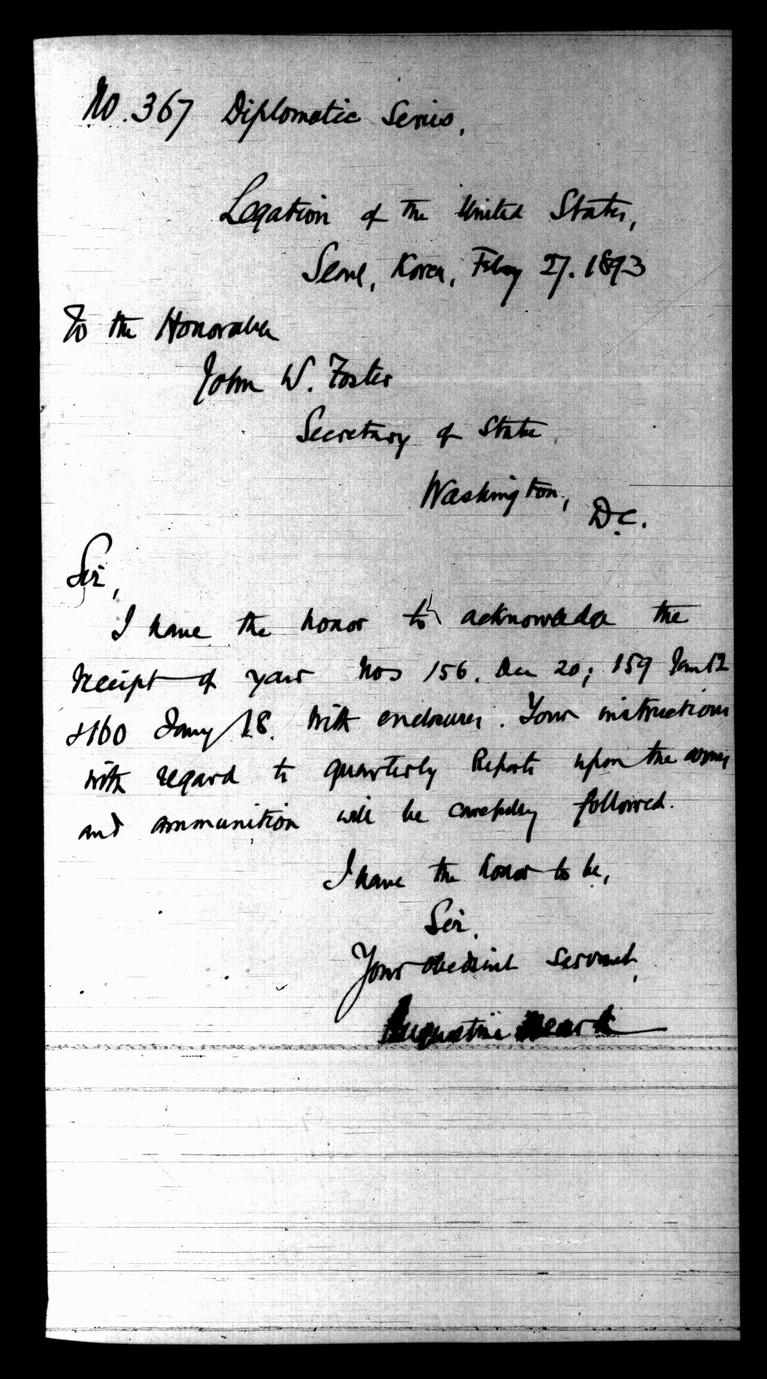 No. 367 Diplomatic Series.
Legation of the United States,
Seoul, Korea, Feby 27. 1893
To the Honorable
John W. Foster
Secretary of State
Washington,
D.C.
Sir,
I have the honor to acknowledge the
receipt of your Nos 156. Dec 20; 159 Jan 12
& 160 Jany 18. with enclosures. Your instructions
with regard to quarterly Reports upon the arms
and ammunition will be carefully followed.
I have the honor to be,
Sir,
Your obedient servant,
Augustine Heard